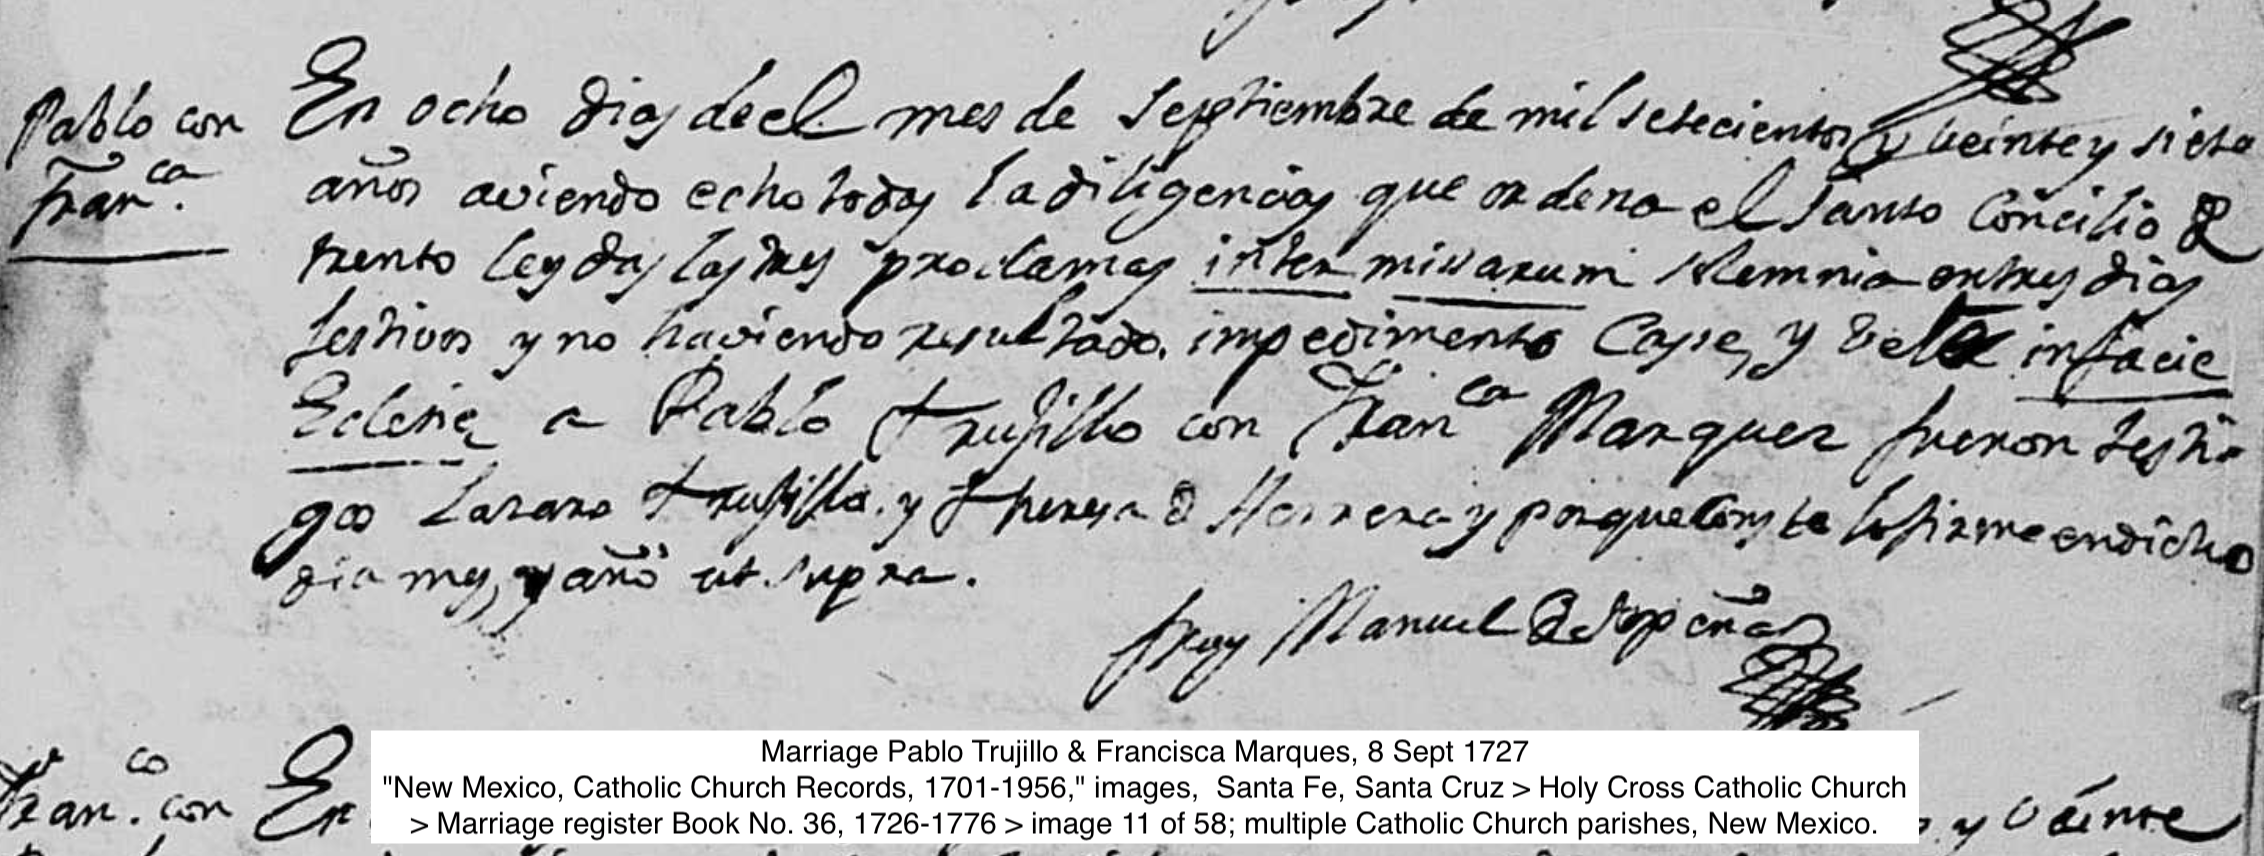 Pablo con
Fran.ca
En ocho dias de el mes de septiembre de mil setecientos y veinte y siete
años aviendo echo todas la diligencias que ordena el santo Concilio de
trento leydas las tres proclamas inter missarum solemnia en tres dias
festivos y no haviendo resultado impedimento Case, y vele infacie
Eclesie a Pablo trujillo con Franca Marquez fueron testi-
gos Lazaro trujillo y theresa de Herrera y porque conste lo firme en dicho
dia mes, y año ut supra.
fray Manuel de
Fran.co con
En
y veinte
Marriage Pablo Trujillo & Francisca Marques, 8 Sept 1727
"New Mexico, Catholic Church Records, 1701-1956," images, Santa Fe, Santa Cruz > Holy Cross Catholic Church
> Marriage register Book No. 36, 1726-1776 > image 11 of 58; multiple Catholic Church parishes, New Mexico.